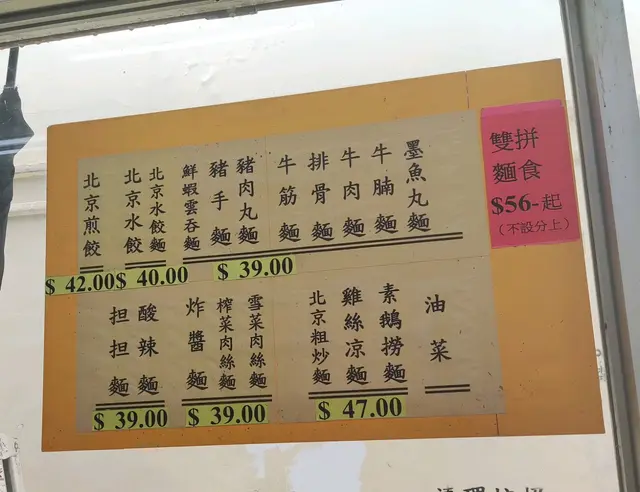 墨魚丸麵
牛腩麵
牛肉麵
排骨麵
牛筋麵
豬肉丸麵
豬手麵
鮮蝦雲吞麵
北京水餃麵
北京水餃
北京煎餃
$ 39.00
$ 40.00
$ 42.00
油菜
素鵝撈麵
雞絲凉麵
北京粗炒麵
$ 47.00
雪菜肉絲麵
榨菜肉絲麵
炸醬麵
$ 39.00
酸辣麵
担担麵
$ 39.00
雙拼
麵食
$56-起
(不設分上)